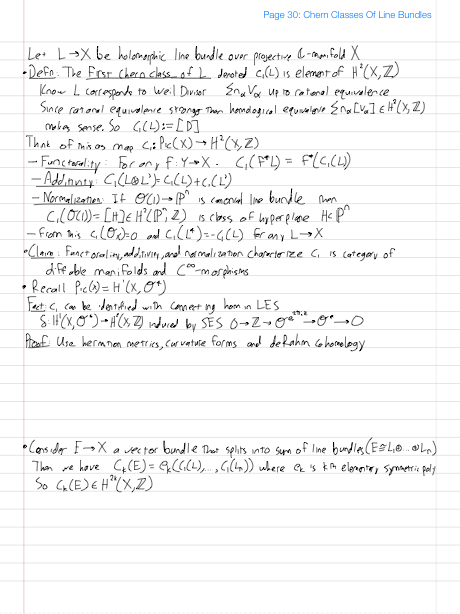 Page 30: Chern Classes Of Line Bundles
Let L→X be holomorphic line bundle over projective ℂ-manifold X
• Defn: The First Chern class of L denoted C₁(L) is element of H²(X,ℤ)
Know L corresponds to Weil Divisor Σnα Vα up to rational equivalence
Since rational equivalence stronger than homological equivalence Σnα[Vα] ∈ H²(X,ℤ)
makes sense. So C₁(L) := [D]
Think of this as map C₁: Pic(X) → H²(X,ℤ)
– Functorality: For any f: Y→X. C₁(f*L) = f*(C₁(L))
– Additivity: C₁(L⊗L') = C₁(L) + C₁(L')
– Normalization: If O(1)→ℙⁿ is canonical line bundle then
C₁(O(1)) = [H] ∈ H²(ℙⁿ,ℤ) is class of hyperplane H⊂ℙⁿ
– From this C₁(Oₓ)=0 and C₁(L*)=-C₁(L) for any L→X
• Claim: Functorality, additivity, and normalization characterize C₁ is category of
diffable manifolds and C^∞-morphisms
• Recall Pic(X) = H¹(X, O*)
Fact: C₁ can be identified with connecting hom in LES
δ: H¹(X,O*) → H²(X,ℤ) induced by SES 0→ℤ→O e^{2πiz}→ O*→0
Proof: Use hermitian metrics, curvature forms and deRham Cohomology
• Consider E→X a vector bundle that splits into sum of line bundles (E≅L₁⊕...⊕Lₙ)
Then we have Cₖ(E) = eₖ(C₁(L₁),...,C₁(Lₙ)) where eₖ is kth elementary symmetric poly
So Cₖ(E) ∈ H²ᵏ(X,ℤ)